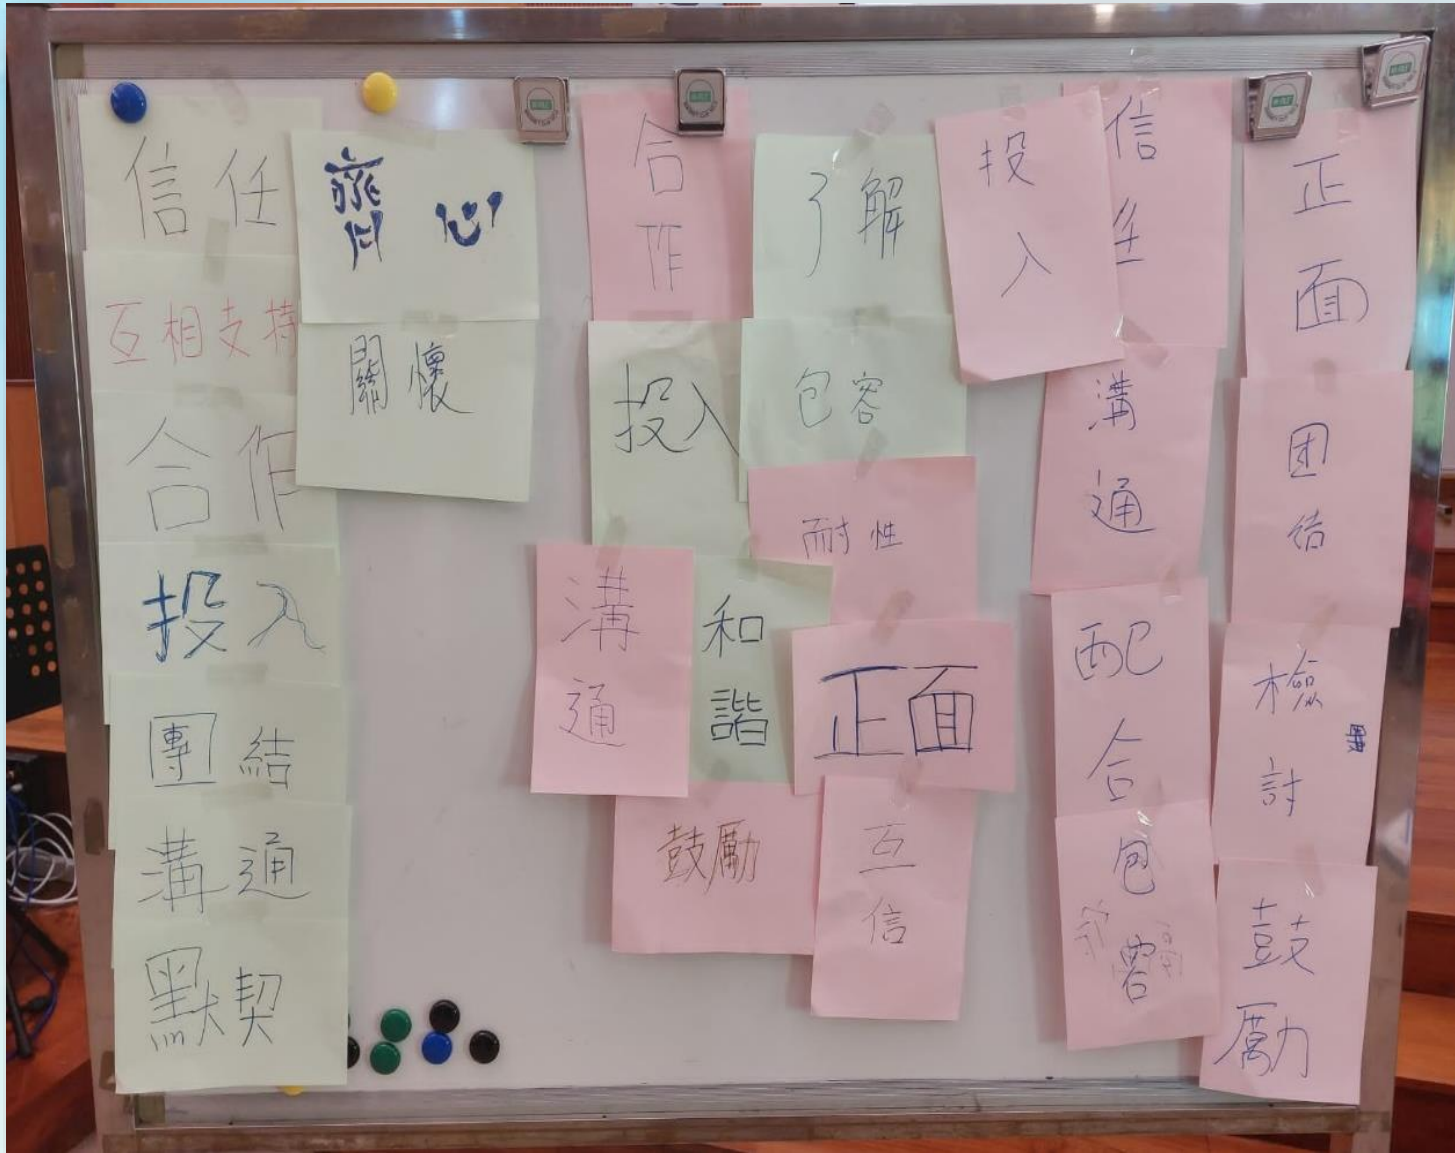 信任
互相支持
合作
投入
團結
溝通
默契
齊心
關懷
合作
投入
了解
包容
耐性
溝通
和諧
正面
鼓勵
互信
投入
信任
溝通
配合
包容
正面
团结
檢討
鼓勵